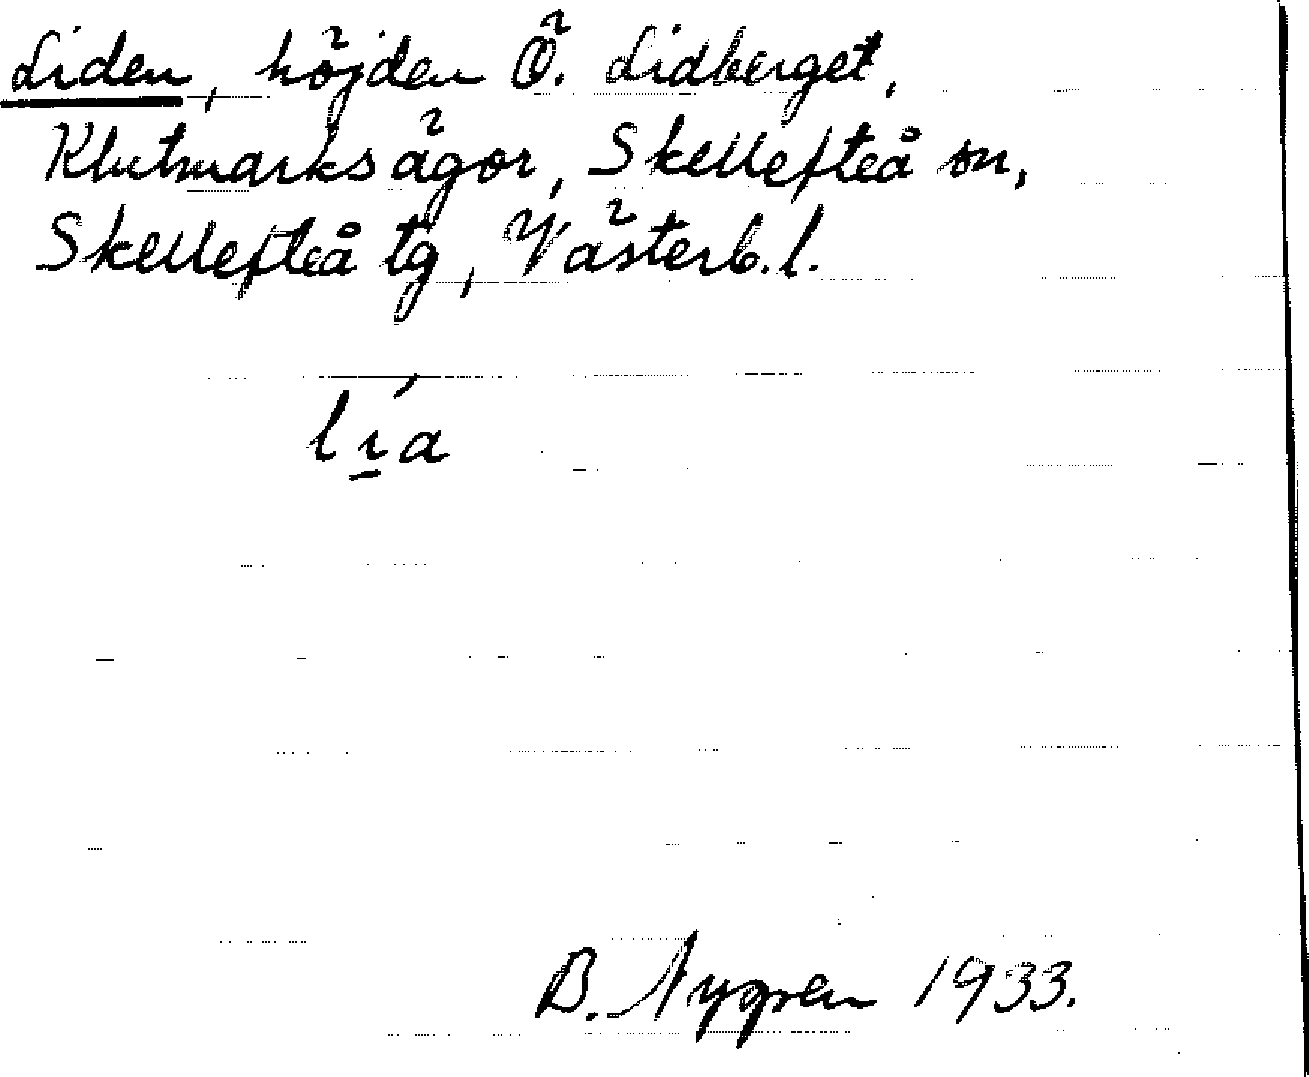 Liden, höjden Ö. Lidberget,
Klutmarks ägor, Skellefteå sn,
Skellefteå tg, Västerb. l.
lı̱´a
B. Nygren 1933.